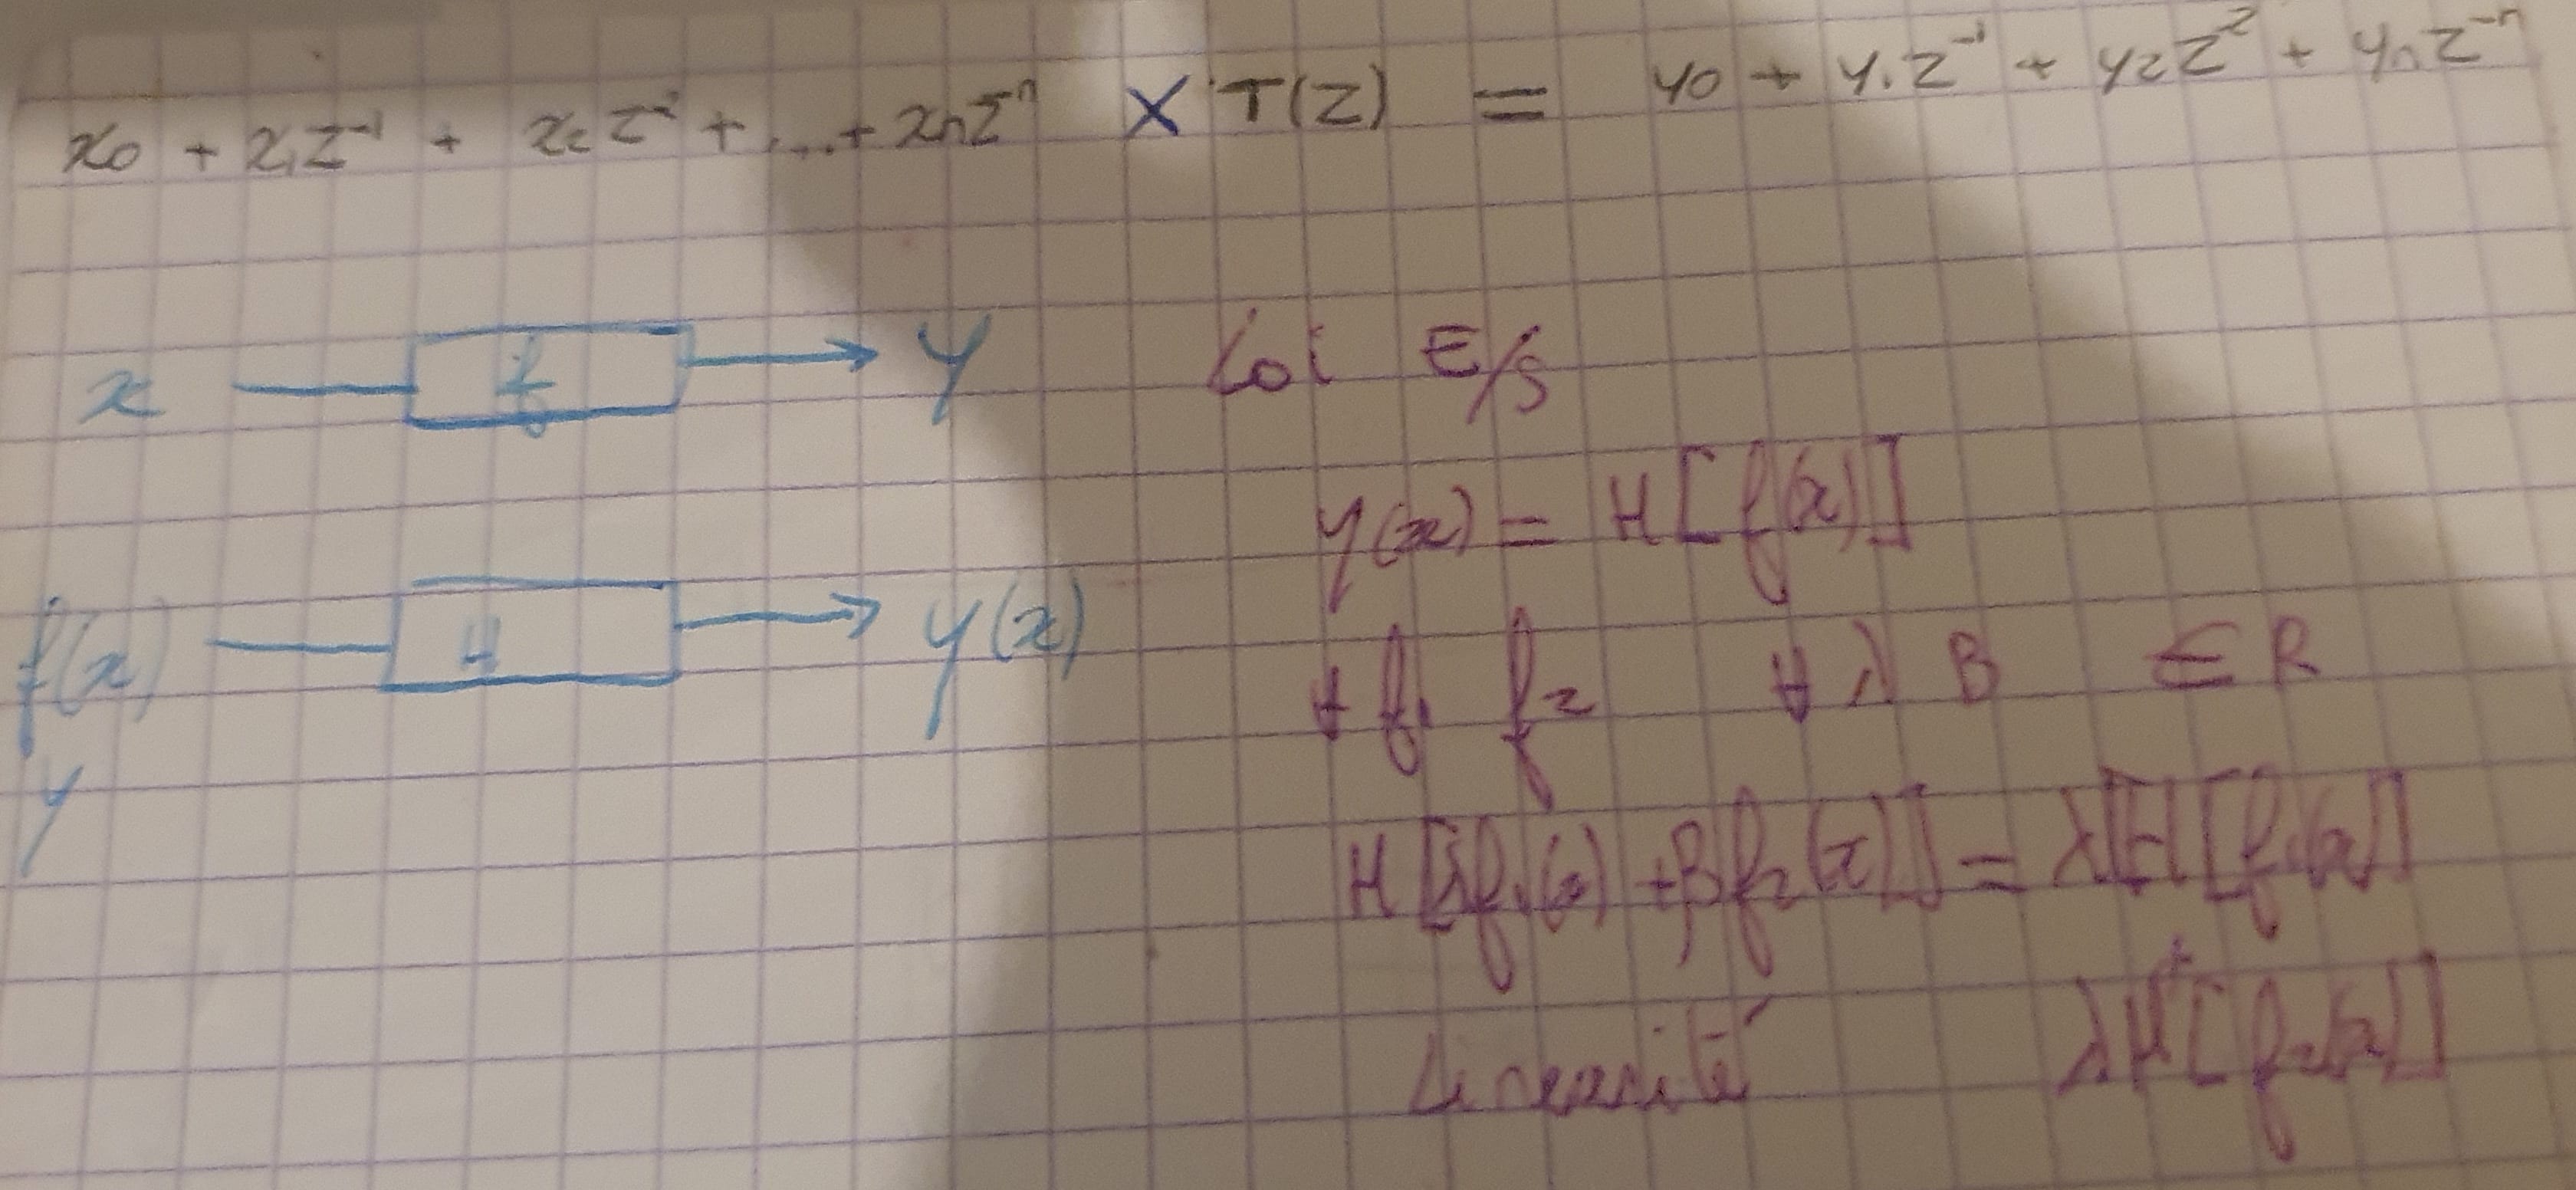 x0 + x1 Z^-1 + x2 Z^-2 + ... + xn Z^-n × T(Z) = y0 + y1 Z^-1 + y2 Z^2 + yn Z^-n
x f y
Loi E/S
y(x) = H[f(x)]
f(x) H y(x)
y
∀ f1 f2 ∀ λ B ∈ R
H[λf1(x) + βf2(x)] = λH[f1(x)]
+
λH[f2(x)]
Linéarité